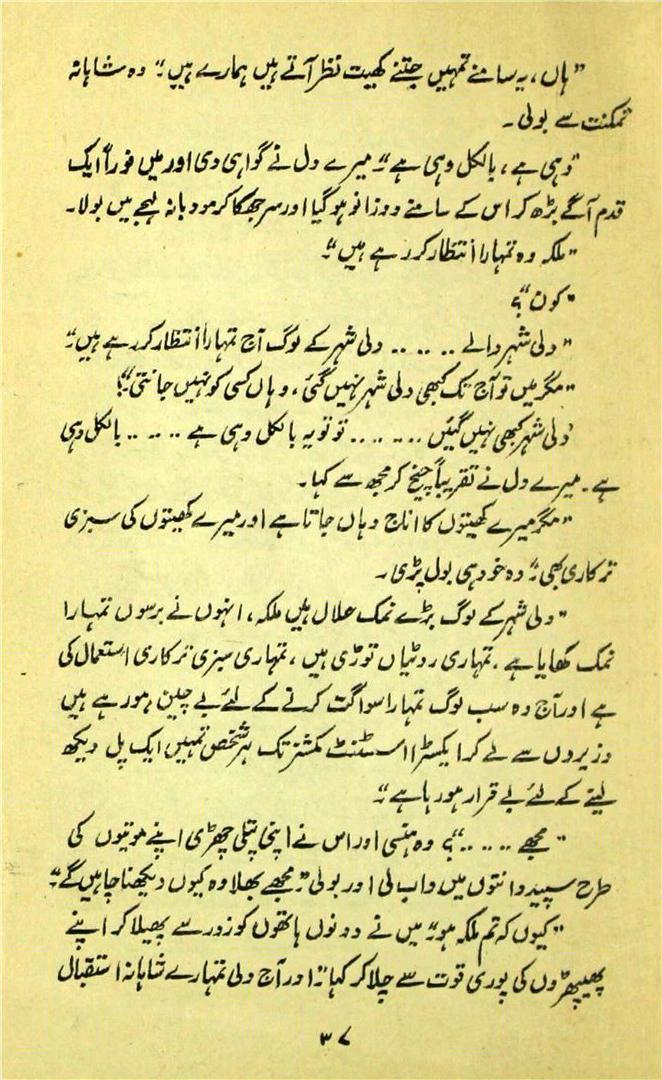 ”ہاں، یہ سامنے تمہیں جتنے کھیت نظر آتے ہیں ہمارے ہیں“۔ وہ شاہانہ
تمکنت سے بولی۔
”وہی ہے، بالکل وہی ہے“۔ میرے دل نے گواہی دی اور میں فوراً ایک
قدم آگے بڑھ کر اس کے سامنے دوزانو ہو گیا اور سر جھکا کر مودبانہ لہجے میں بولا۔
”ملکہ وہ تمہارا انتظار کر رہے ہیں“۔
”کون“؟
”دلی شہر والے .. .. .. دلی شہر کے لوگ آج تمہارا انتظار کر رہے ہیں“۔
”مگر میں تو آج تک کبھی دلی شہر نہیں گئی، وہاں کسی کو نہیں جانتی“؟
”دلی شہر کبھی نہیں گئیں .. .. .. .. تو تو یہ بالکل وہی ہے .. .. .. بالکل وہی
ہے۔ میرے دل نے تقریباً چیخ کر مجھ سے کہا۔
”مگر میرے کھیتوں کا اناج وہاں جاتا ہے اور میرے کھیتوں کی سبزی
ترکاری بھی“۔ وہ خود ہی بول پڑی۔
”دلی شہر کے لوگ بڑے نمک حلال ہیں ملکہ، انہوں نے برسوں تمہارا
نمک کھایا ہے۔ تمہاری روٹیاں توڑی ہیں، تمہاری سبزی ترکاری استعمال کی
ہے اور آج وہ سب لوگ تمہارا سواگت کرنے کے لئے بے چین ہو رہے ہیں
وزیروں سے لے کر ایکسٹرا اسسٹنٹ کمشنر تک ہر شخص تمہیں ایک پل دیکھ
لینے کے لئے بے قرار ہو رہا ہے“۔
”مجھے .. .. ..“؟ وہ ہنسی اور اس نے اپنی پتلی چھڑی اپنے موتیوں کی
طرح سپید دانتوں میں داب لی اور بولی ”مجھے بھلا وہ کیوں دیکھنا چاہیں گے“۔
”کیوں کہ تم ملکہ ہو“۔ میں نے دونوں ہاتھوں کو زور سے پھیلا کر اپنے
پھیپھڑوں کی پوری قوت سے چلا کر کہا۔ ”اور آج دلی تمہارے شاہانہ استقبال
۳۷